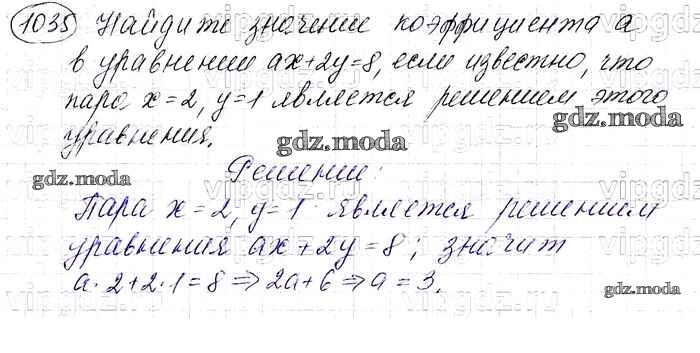 1035 Найдите значение коэффициента a
в уравнении ax+2y=8, если известно, что
пара x=2, y=1 является решением этого
уравнения.
gdz.moda
gdz.moda
Решение:
gdz.moda
vipgdz.ru
Пара x=2, y=1 является решением
уравнения ax+2y=8; значит
a·2+2·1=8⇒2a+6⇒a=3.
gdz.moda